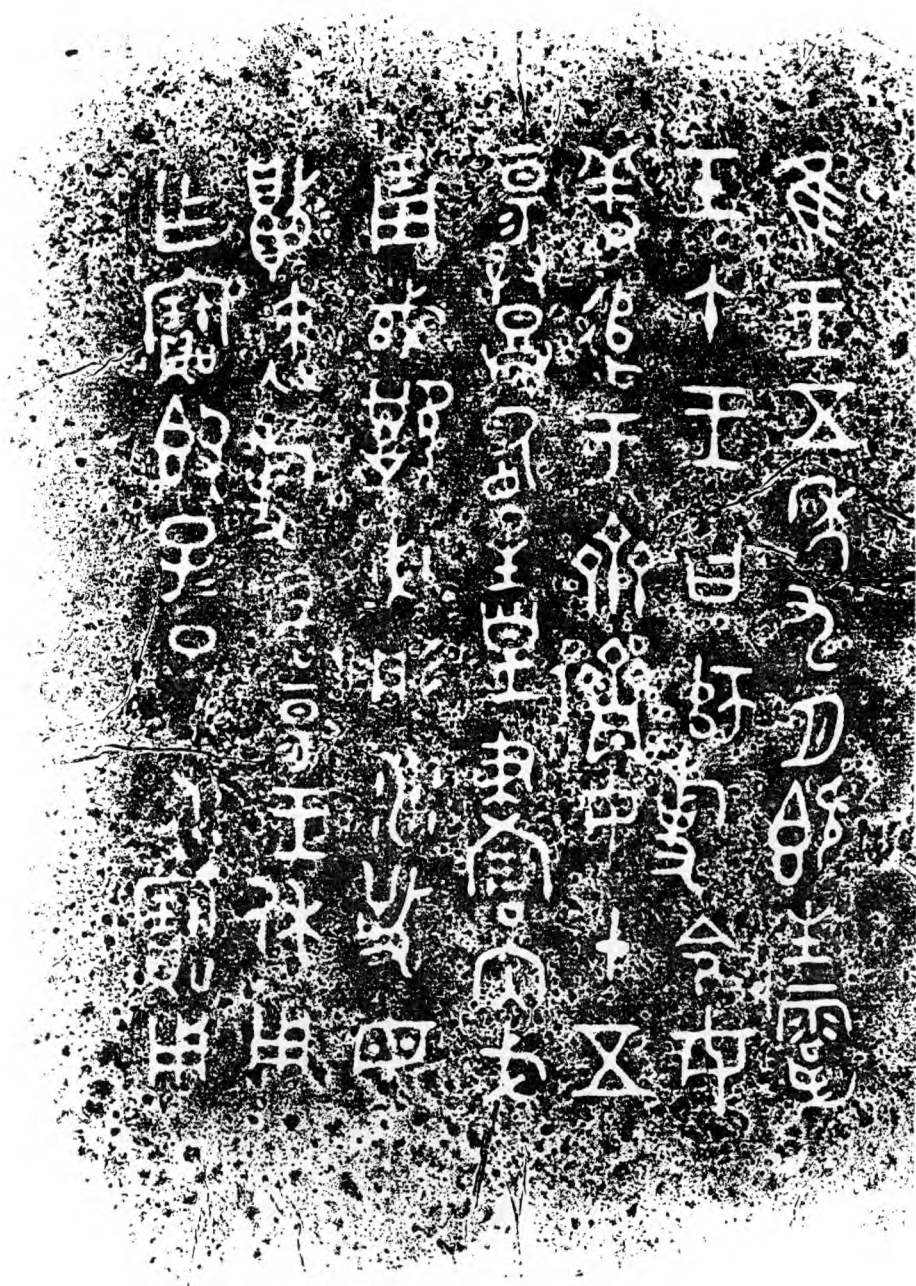 隹王五年九月既生霸
壬午王曰師旋令女
羞追于齊儕女毌五
昜登盾生皇畫內戈
琱㦸厚必彤沙敬毋
敗速旋敢昜王休用
乍寶𣪘子子孫孫永寶用